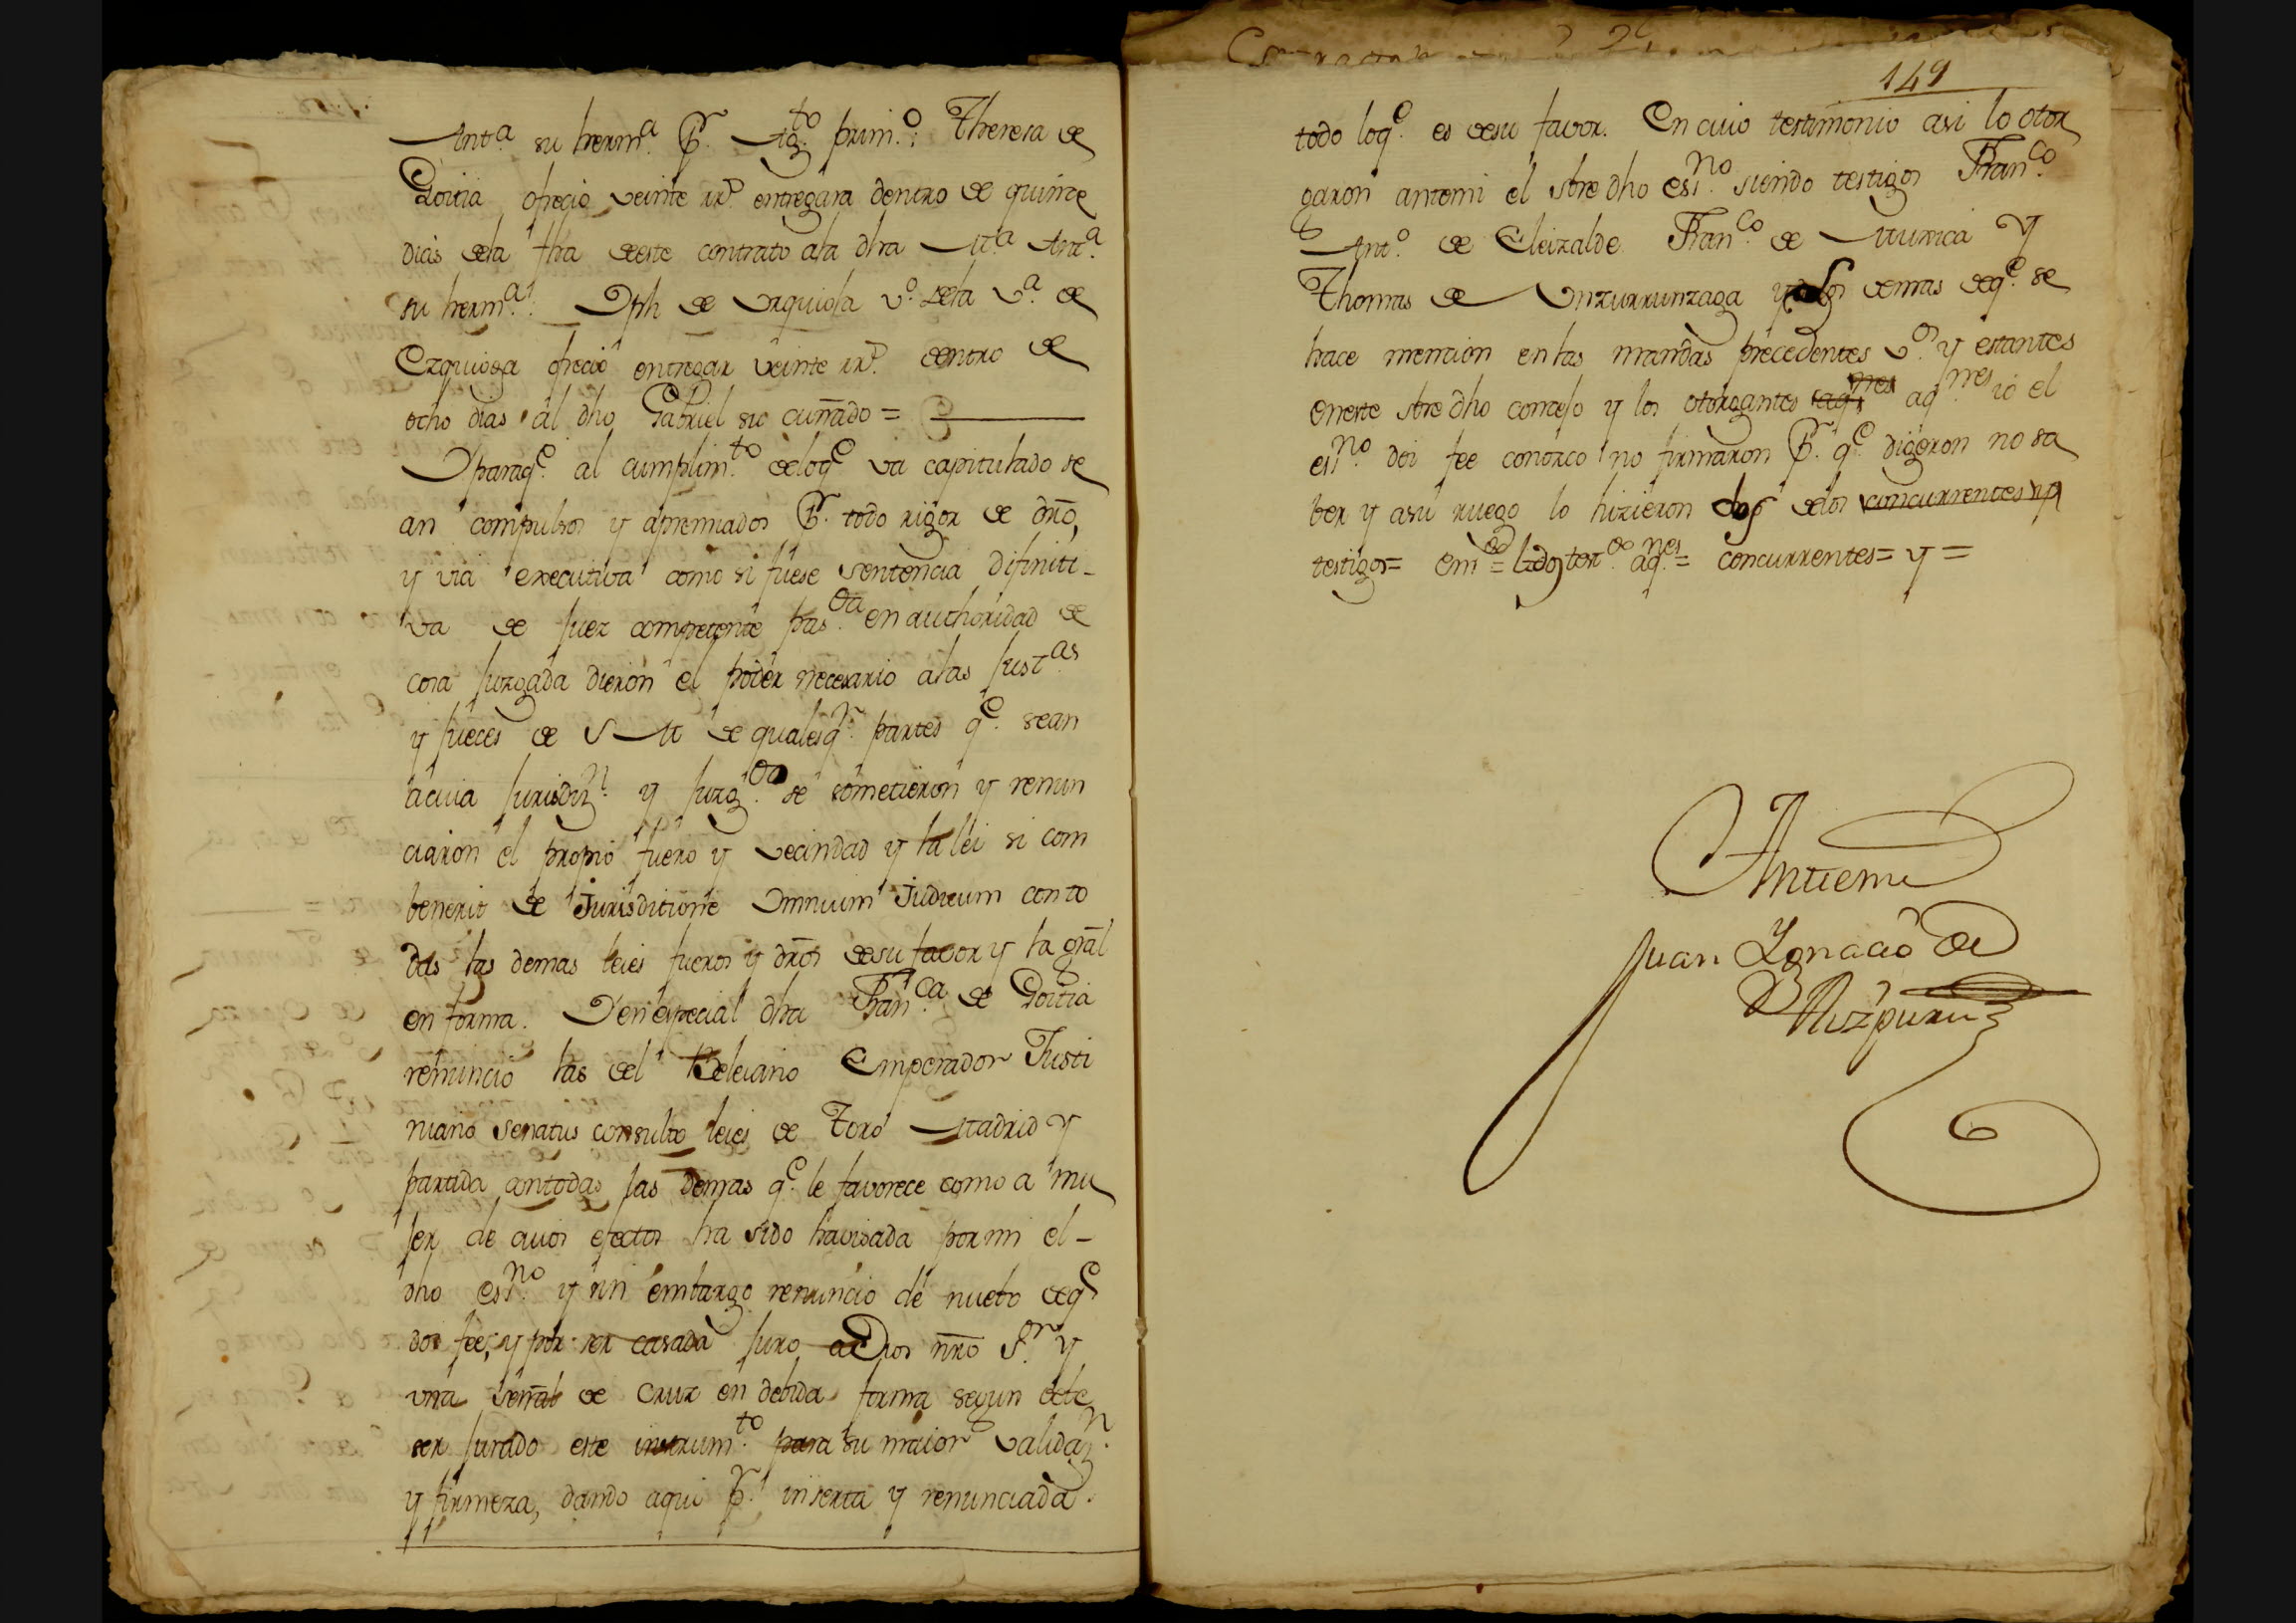 Ant.ª su herm.ª Pr. Ag.to prim.o: Theresa de
Goitia ofrecio veinte Rs. entregara dentro de quinze
dias dela fha deeste contrato ala dha M.ª Ant.ª
su herm.ª: Jph de Urquiola v.o dela v.ª de
Ezquioga ofrecio entregar veinte Rs. dentro de
ocho dias al dho Gabriel su cuñado =
Y paraq.e al cumplim.to deloq.e va capitulado se
an compulsos y apremiados Pr. todo rigor de dro,
y via executiva como si fuese sentencia difiniti-
va de Juez competente pas.da en authoridad de
cosa Juzgada dieron el poder necesario alas Just.as
y Jueces de S M de qualesq.r partes q.e sean
acuia Jurisdiz.n y Juzg.do se sometieron y renun
ciaron el propio fuero y vecindad y la lei si com
benerit de Jurisditione Omnium Judicum con to
das las demas leies fueros y dros desu favor y la gral
en forma. Y en especial dha Fran.ca de Goitia
renuncio las del Beleiano Emperador Justi
niano senatus consulto leies de Toro Madrid y
partida contodas las demas q.e le favorece como a mu
Jer de cuios efectos ha sido havisada por mi el-
dho ess.no y sin embargo renuncio de nuebo deq.e
doi fee, y por ser casada Juro a Dios nro S.or y
una señal de Cruz en debida forma segun debe
ser Jurado este instrum.to para su maior validaz.n
y firmeza, dando aqui Pr. inserta y renunciada.
149
todo loq.e es desu favor. En cuio testimonio asi lo otor
garon antemi el sbre dho ess.no siendo testigos Fran.co
Ant.o de Eleizalde Fran.co de Munica y
Thomas de Unzurrunzaga y los demas deq.e se
hace mencion en las mandas precedentes v.os y estantes
eneste sbre dho concejo y los otorgantes aq.nes aq.nes io el
ess.no doi fee conozco no firmaron Pr. q.e digeron no sa
ber y asu ruego lo hizieron dos delos concurrentes
testigos= em.do = dos test.do aq.nes = concurrentes = y =
Antemi
Juan Ignacio de
Aizpuru